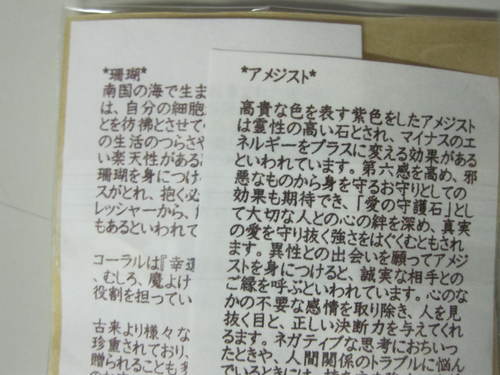 *珊瑚*
南国の海で生ま
は、自分の細胞
とを彷彿とさせて
の生活のつらさや
い楽天性がある
珊瑚を身につけ
スがとれ、抱く必
レッシャーから、
もあるといわれて
コーラルは『幸運
、むしろ、魔よけ
役割を担ってい
古来より様々な
珍重されており、
贈られることも多
*アメジスト*
高貴な色を表す紫色をしたアメジスト
は霊性の高い石とされ、マイナスのエ
ネルギーをプラスに変える効果がある
といわれています。第六感を高め、邪
悪なものから身を守るお守りとしての
効果も期待でき、「愛の守護石」とし
て大切な人との心の絆を深め、真実
の愛を守り抜く強さをはぐくむともされ
ます。異性との出会いを願ってアメジ
ストを身につけると、誠実な相手との
ご縁を呼ぶといわれています。心のな
かの不要な感情を取り除き、人を見
抜く目と、正しい決断力を与えてくれ
るます。ネガティブな思考におちいっ
たときや、人間関係のトラブルに悩ん
でいるときには、